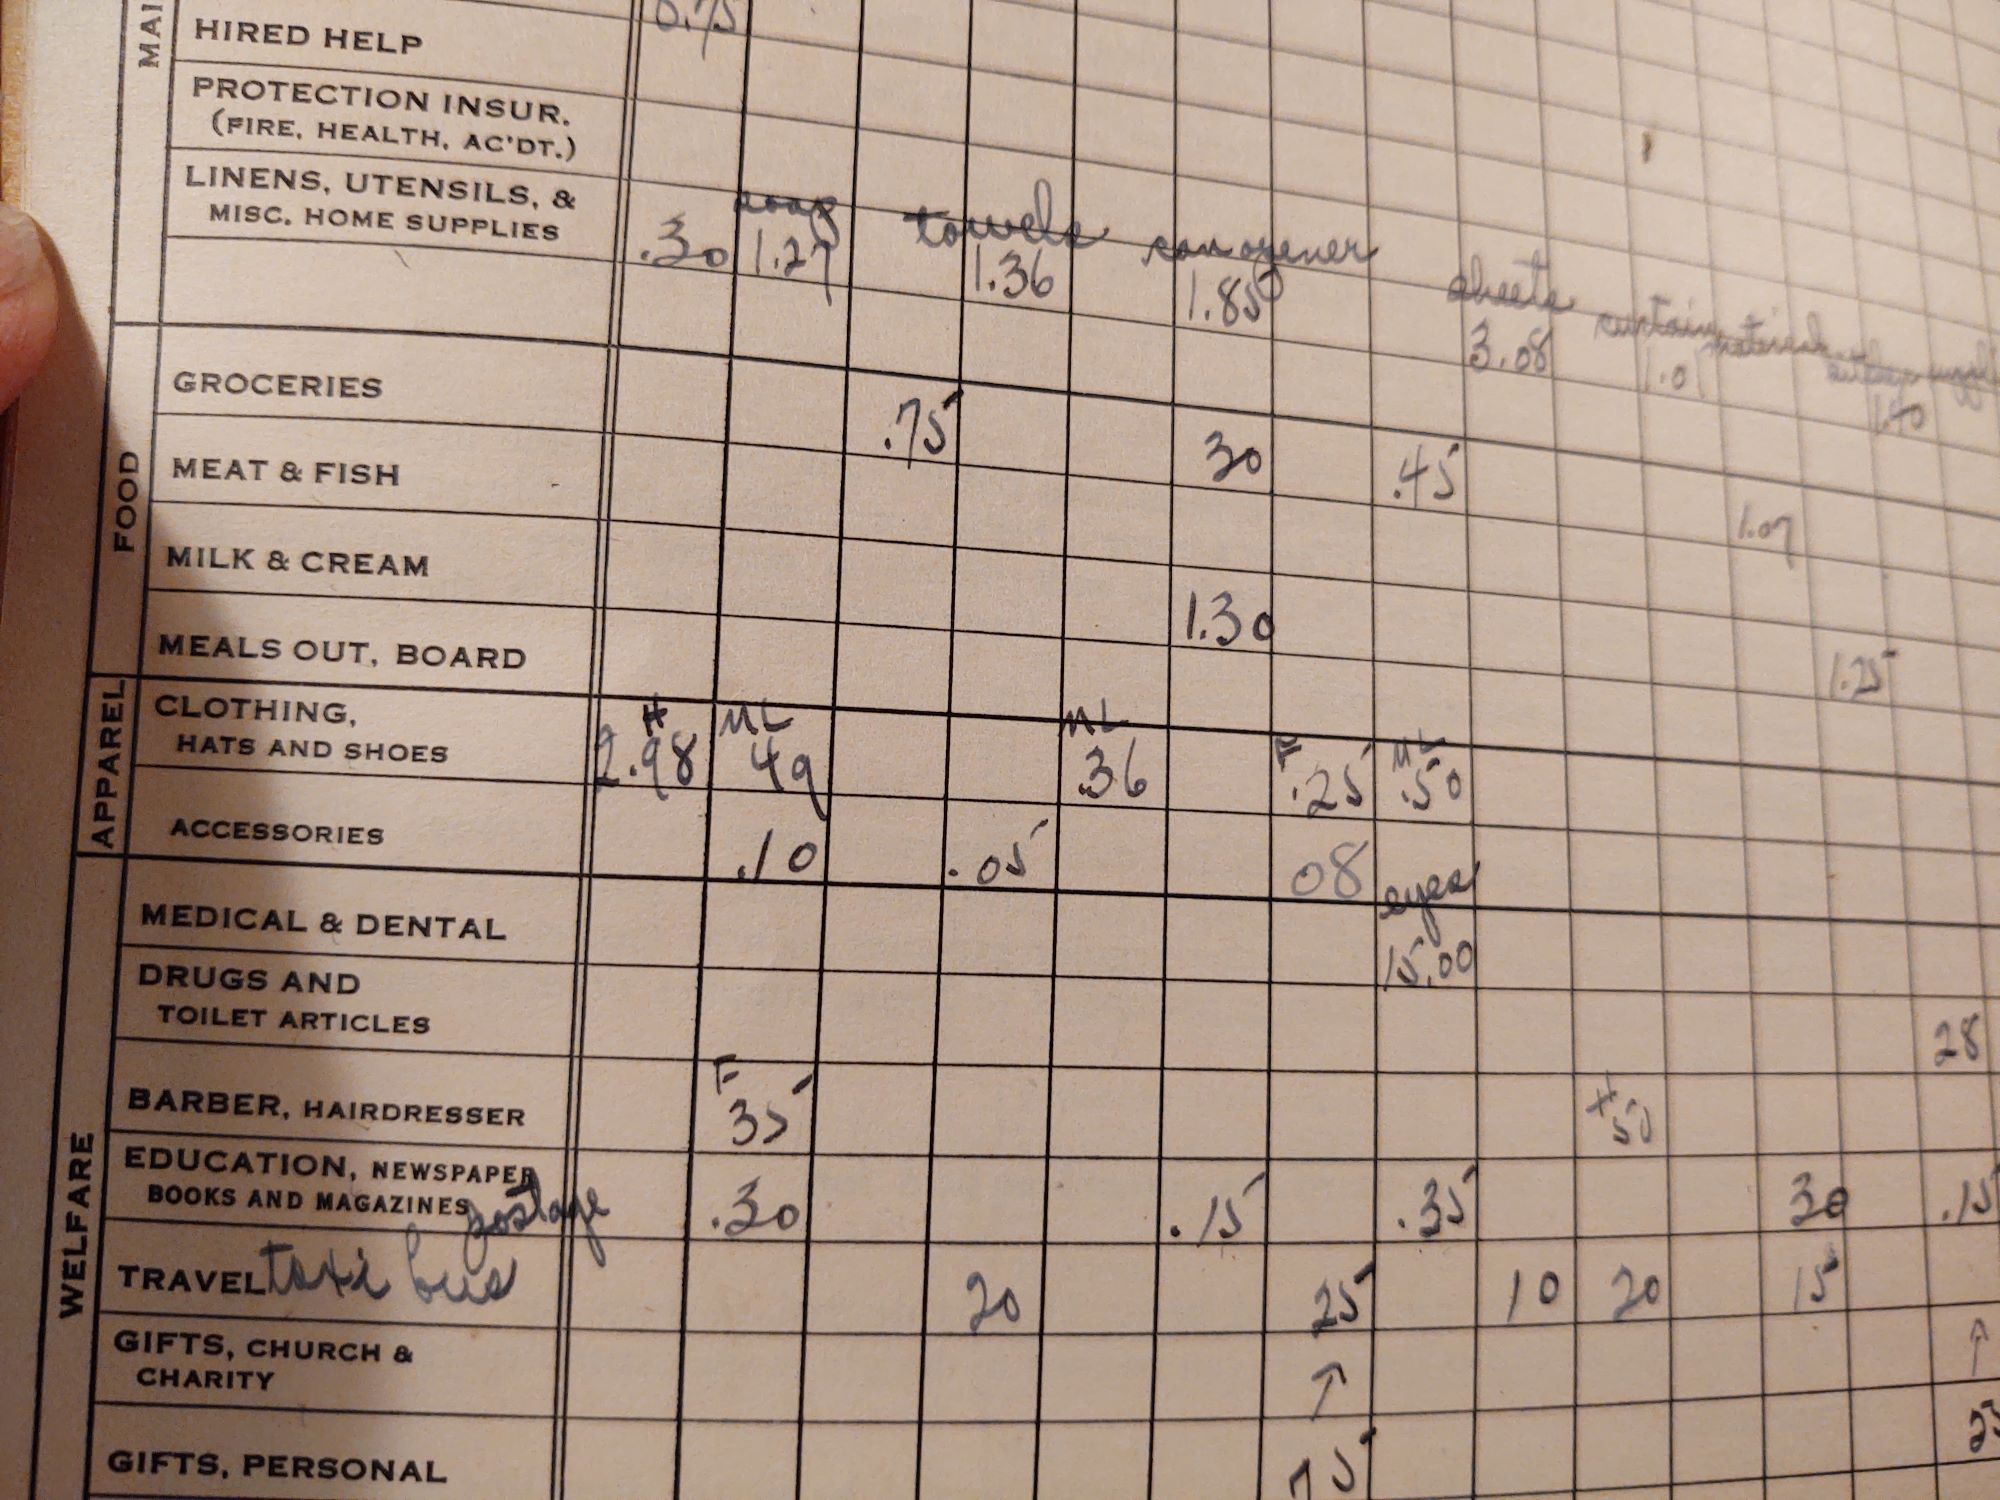 MAI
HIRED HELP
0.75
PROTECTION INSUR.
(FIRE, HEALTH, AC'DT.)
LINENS, UTENSILS, &
MISC. HOME SUPPLIES
soap towels can opener sheets curtain material
.30 1.27 1.36 1.85 3.08 1.01 1.40
FOOD
GROCERIES
.75 30 .45 1.07
MEAT & FISH
MILK & CREAM
1.30 1.25
MEALS OUT, BOARD
APPAREL
CLOTHING,
HATS AND SHOES
H ML ML F ML
2.98 49 .36 .25 .50
ACCESSORIES
.10 .05 08
WELFARE
MEDICAL & DENTAL
eyes
15.00
DRUGS AND
TOILET ARTICLES
28
BARBER, HAIRDRESSER
F H
35 50
EDUCATION, NEWSPAPER
BOOKS AND MAGAZINES postage
.30 .15 .35 30 .15
TRAVEL taxi bus
20 25 10 20 15
GIFTS, CHURCH &
CHARITY
↑ ↑
GIFTS, PERSONAL
75